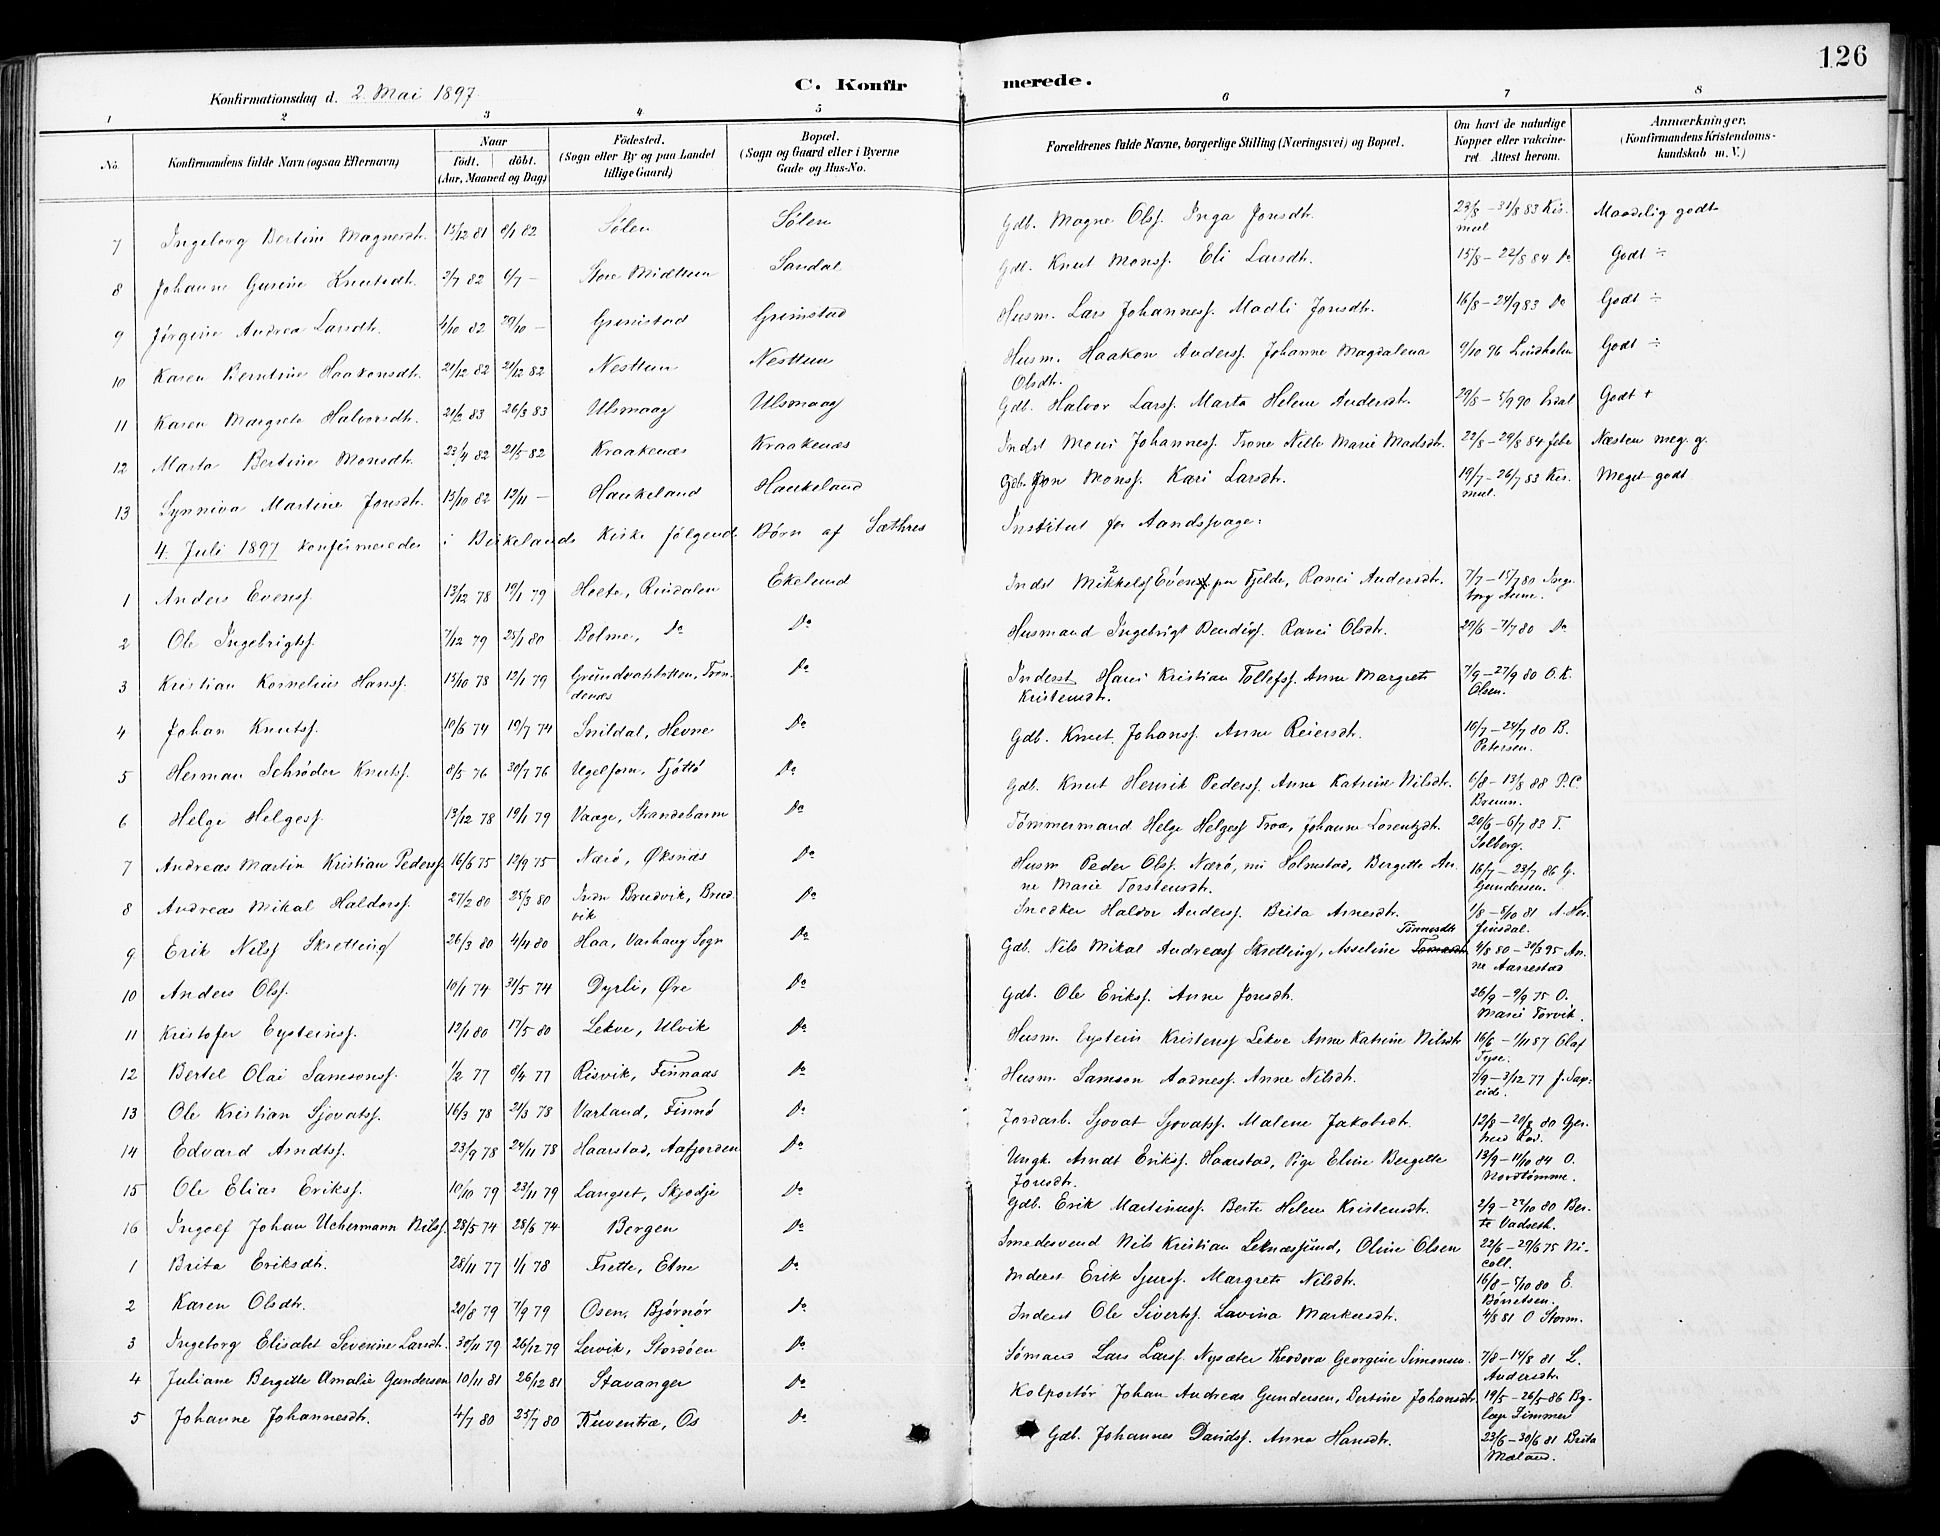 126
C. Konfirmerede.
Konfirmationsdag d. 2 Mai 1897
1 2 3 4 5 6 7 8
No. Konfirmandens fulde Navn (ogsaa Efternavn) Naar født. døbt. (Aar, Maaned og Dag) Fødested. (Sogn eller By og paa Landet tillige Gaard) Bopæl. (Sogn og Gaard eller i Byerne Gade og Hus-No. Forældrenes fulde Navne, borgerlige Stilling (Næringsvei) og Bopæl. Om havt de naturlige Kopper eller vakcineret. Attest herom. Anmærkninger. (Konfirmandens Kristendomskundskab m. V.)
7 Ingeborg Bertine Magnesdtr. 15/12 81 8/1 82 Sølen Sølen Gdb. Magne Olsf. Inga Jonsdtr. 23/8 – 31/8 83 Kismul Maadelig godt
8 Johanne Gurine Knutsdtr. 2/7 82 9/7 – Store Midttun Sandal Gdb. Knut Monsf. Eli Larsdtr. 15/8 – 22/8 84 Do Godt ÷
9 Jørgine Andrea Larsdtr. 4/10 82 29/10 – Grimstad Grimstad Husm. Lars Johannesf. Madli Jonsdtr. 16/8 – 24/9 83 Do Godt ÷
10 Karen Berntine Haakonsdtr. 21/12 82 21/12 82 Nesttun Nesttun Husm. Haakon Andersf. Johanne Magdalena Olsdtr. 9/10 96 Lindholm Godt ÷
11 Karen Margrete Halvorsdtr. 21/2 83 26/3 83 Ulsmaag Ulsmaag Gdb. Halvor Larsf. Marta Helene Andersdtr. 29/8 – 5/9 90 Godt +
12 Marta Bertine Monsdtr. 23/4 82 21/5 82 Kraakenæs Kraakenæs Indst Mons Johannesf. Trone Nille Marie Madsdtr. 22/8 – 29/8 84 Næsten meg. g.
13 Synniva Martine Jonsdtr. 13/10 82 12/11 – Haukeland Haukeland Gdb. Jon Monsf. Kari Larsdtr. 19/7 – 26/7 83 Kismul. Meget godt
4. Juli 1897 konfirmeredes i Birkelands Kirke følgende Børn af Sæthres Institut for Aandssvage:
1 Anders Evensf. 13/12 78 19/1 79 Holte, Rindalen Ekelund Indst Mikkelsf Even paa Fjelde, Ranei Andersdtr. 7/7 – 15/7 80 Ingeborg Aune.
2 Ole Ingebrigtsf. 7/12 79 25/1 80 Bolme, Do Do Husmand Ingebrigt Bendiksf. Ranei Olsdtr. 29/6 – 7/7 80 Do
3 Kristian Kornelius Hansf. 13/10 78 12/1 79 Grundvatsletten, Trondenæs Do Inderst Hans Kristian Tollefsf. Anne Margrete Kristensdtr. 7/9 – 27/9 80 O. K. Olsen.
4 Johan Knutsf. 10/6 74 19/7 74 Snildal, Hevne Do Gdb. Knut Johansf. Anne Reiersdtr. 16/7 – 24/7 80 B. Petersen.
5 Herman Schrøder Knutsf. 8/5 76 30/7 76 Ugelforn, Tjøttø Do Gdb. Knut Henrik Pedersf. Anne Katrine Nilsdtr. 6/8 – 13/8 88 P.C. Bruun.
6 Helge Helgesf. 13/12 78 19/1 79 Vaage, Strandebarm Do Tømmermand Helge Helgesf Troa, Johanne Lorentzdtr. 20/6 – 6/7 83 T. Solberg.
7 Andreas Martin Kristian Pedersf. 16/6 75 12/9 75 Nærø, Øksnæs Do Husm. Peder Olsf. Nærø, nu Holmstad, Bergitte Anne Marie Torstensdtr. 16/7 – 23/7 86 G. Gundersen.
8 Andreas Mikal Haldorsf. 27/2 80 28/3 80 Indre Bruvik, Bruvik Do Snedker Haldor Andersf. Brita Arnesdtr. 1/8 – 5/10 81
9 Erik Nilsf Skretting 26/3 80 4/4 80 Haa, Varhaug Sogn Do Gdb. Nils Mikal Andreasf Skretting, Asseline Tønnesdtr 4/8 80 – 30/3 95 Anne Aarrestad
10 Anders Olsf. 10/1 74 31/5 74 Dyrli, Øre Do Gdb. Ole Eriksf. Anne Jonsdtr. 26/9 – 9/9 75 O. Marie Torvik.
11 Kristofer Eysteinsf. 12/1 80 17/5 80 Lekve, Ulvik Do Husm. Eystein Kristensf Lekve Anne Katrine Nilsdtr 16/6 – 1/11 87 Olaf Tyse.
12 Bertel Olai Samsonsf. 1/2 77 8/4 77 Risvik, Finnaas Do Husm. Samson Aadnesf. Anne Nilsdtr. 7/9 – 3/12 77 J. Sapeide.
13 Ole Kristian Sjovatsf. 16/3 78 21/3 78 Varland, Finnø Do Jordarb. Sjovat Sjovatsf. Malene Jakobsdtr. 12/8 – 20/8 80
14 Edvard Arndtsf. 23/9 78 24/11 78 Haarstad, Aafjorden Do Ungk. Arndt Eriksf. Haarstad, Pige Eline Bergitte Jonsdtr. 13/9 – 11/10 84 O. Nordtømme.
15 Ole Elias Eriksf. 10/10 79 23/11 79 Langset, Skjodje Do Gdb. Erik Martinusf. Berte Helene Kristensdtr. 2/9 – 27/10 80 Berte Vadseth.
16 Ingolf Johan Uchermann Nilsf. 28/5 74 28/6 74 Bergen Do Smedesvend Nils Kristian Leknæssund, Oline Olsen 22/6 – 29/6 75 Nicoll.
1 Brita Eriksdtr. 28/11 77 1/1 78 Frette, Etne Do Inderst Erik Sjursf. Margrete Nilsdtr. 16/8 – 5/10 80 E. Børetsen.
2 Karen Olsdtr. 20/8 79 7/9 79 Osen, Bjørnør Do Inderst Ole Sivertsf. Lavina Markusdtr. 4/8 81 O Storm.
3 Ingeborg Elisabet Severine Larsdtr. 30/11 79 26/12 79 Lervik, Stordøen Do Sømand Lars Larsf. Nysæter Theodora Georgine Simonsen. 7/8 – 14/8 81 L. Andersdtr.
4 Juliane Bergitte Amalie Gundersen 10/11 81 26/12 81 Stavanger Do Kolportør Johan Andreas Gundersen, Bertine Johansdtr 19/5 – 26/5 86 Bylæge Simmer
5 Johanne Johannesdtr. 4/7 80 25/7 80 Tveventræ, Os Do Gdb. Johannes Davidsf. Anna Hansdtr. 23/6 – 30/6 81 Brita Mæland.